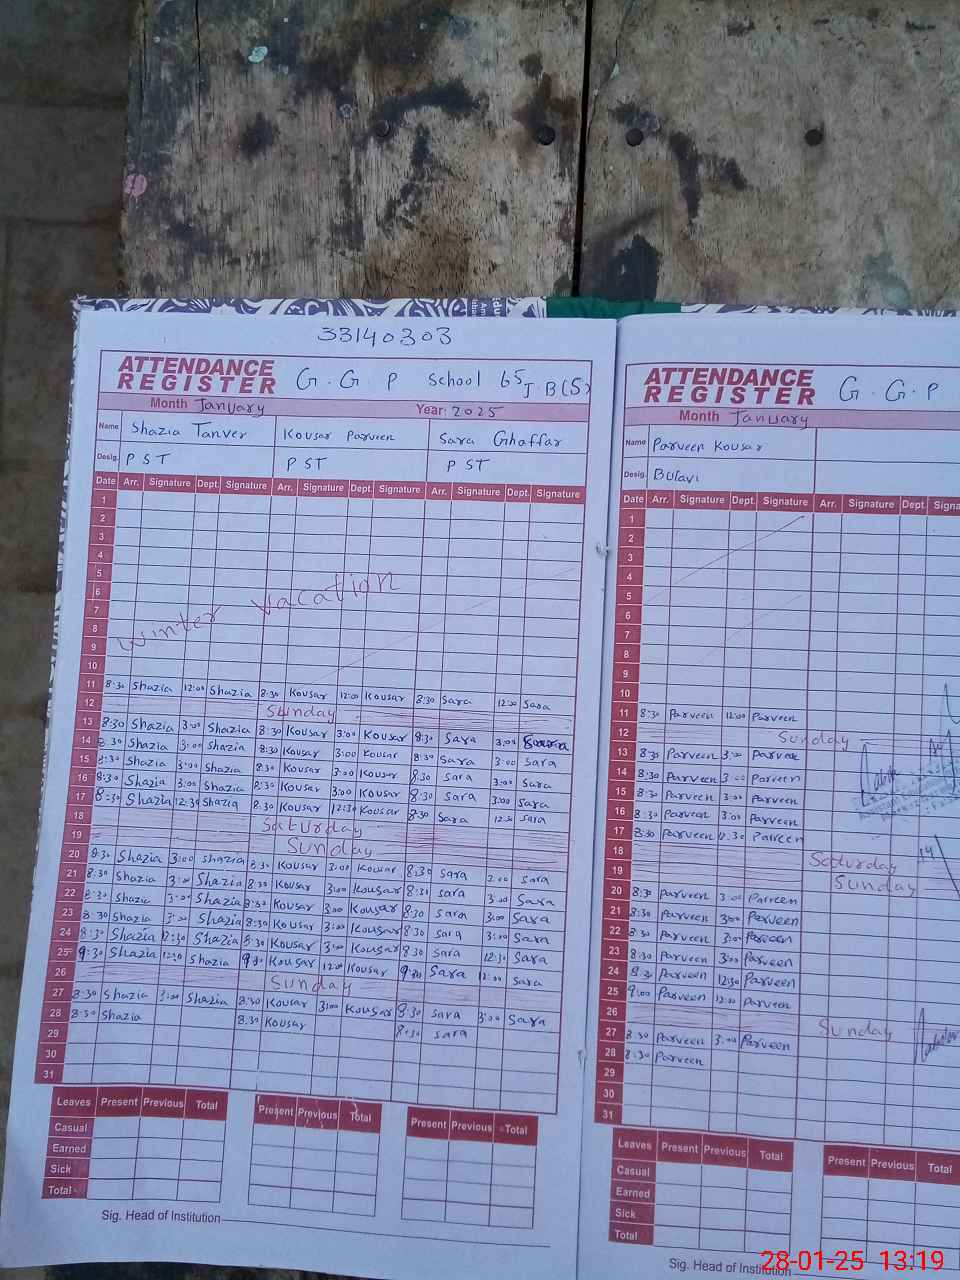 33140303
ATTENDANCE REGISTER G. G. P School 65 J.B(S)
Month January Year: 2025
Name Shazia Tanver Kousar Parveen Sara Ghaffar
Desig. PST PST PST
Date Arr. Signature Dept. Signature Arr. Signature Dept. Signature Arr. Signature Dept. Signature
1
2
3
4
5
6
7
8
9
10
Winter vacation
11 8:30 Shazia 12:00 Shazia 8:30 Kousar 12:00 Kousar 8:30 Sara 12:00 Sara
12 Sunday
13 8:30 Shazia 3:00 Shazia 8:30 Kousar 3:00 Kousar 8:30 Sara 3:00
14 8:30 Shazia 3:00 Shazia 8:30 Kousar 3:00 Kousar 8:30 Sara 3:00 Sara
15 8:30 Shazia 3:00 Shazia 8:30 Kousar 3:00 Kousar 8:30 Sara 3:00 Sara
16 8:30 Shazia 3:00 Shazia 8:30 Kousar 3:00 Kousar 8:30 Sara 3:00 Sara
17 8:30 Shazia 12:30 Shazia 8:30 Kousar 12:30 Kousar 8:30 Sara 12:30 Sara
18 Saturday
19 Sunday
20 8:30 Shazia 3:00 Shazia 8:30 Kousar 3:00 Kousar 8:30 Sara 3:00 Sara
21 8:30 Shazia 3:00 Shazia 8:30 Kousar 3:00 Kousar 8:30 Sara 3:00 Sara
22 8:30 Shazia 3:00 Shazia 8:30 Kousar 3:00 Kousar 8:30 Sara 3:00 Sara
23 8:30 Shazia 3:00 Shazia 8:30 Kousar 3:00 Kousar 8:30 Sara 3:00 Sara
24 8:30 Shazia 12:30 Shazia 8:30 Kousar 3:00 Kousar 8:30 Sara 12:30 Sara
25 9:30 Shazia 12:00 Shazia 9:00 Kousar 12:00 Kousar 9:00 Sara 12:00 Sara
26 Sunday
27 8:30 Shazia 3:00 Shazia 8:30 Kousar 3:00 Kousar 8:30 Sara 3:00 Sara
28 8:30 Shazia 8:30 Kousar 8:30 Sara
29
30
31
Leaves Present Previous Total Present Previous Total Present Previous Total
Casual
Earned
Sick
Total
Sig. Head of Institution
ATTENDANCE REGISTER G. G. P
Month January
Name Parveen Kousar
Desig. Bulavi
Date Arr. Signature Dept. Signature Arr. Signature Dept. Signa
1
2
3
4
5
6
7
8
9
10
11 8:30 Parveen 12:00 Parveen
12 Sunday
13 8:30 Parveen 3:00 Parveen
14 8:30 Parveen 3:00 Parveen
15 8:30 Parveen 3:00 Parveen
16 8:30 Parveen 3:00 Parveen
17 8:30 Parveen 12:30 Parveen
18 Saturday
19 Sunday
20 8:30 Parveen 3:00 Parveen
21 8:30 Parveen 3:00 Parveen
22 8:30 Parveen 3:00 Parveen
23 8:30 Parveen 3:00 Parveen
24 8:30 Parveen 12:30 Parveen
25 9:00 Parveen 12:00 Parveen
26 Sunday
27 8:30 Parveen 3:00 Parveen
28 8:30 Parveen
29
30
31
Leaves Present Previous Total Present Previous Total
Casual
Earned
Sick
Total
Sig. Head of Institution
28-01-25 13:19